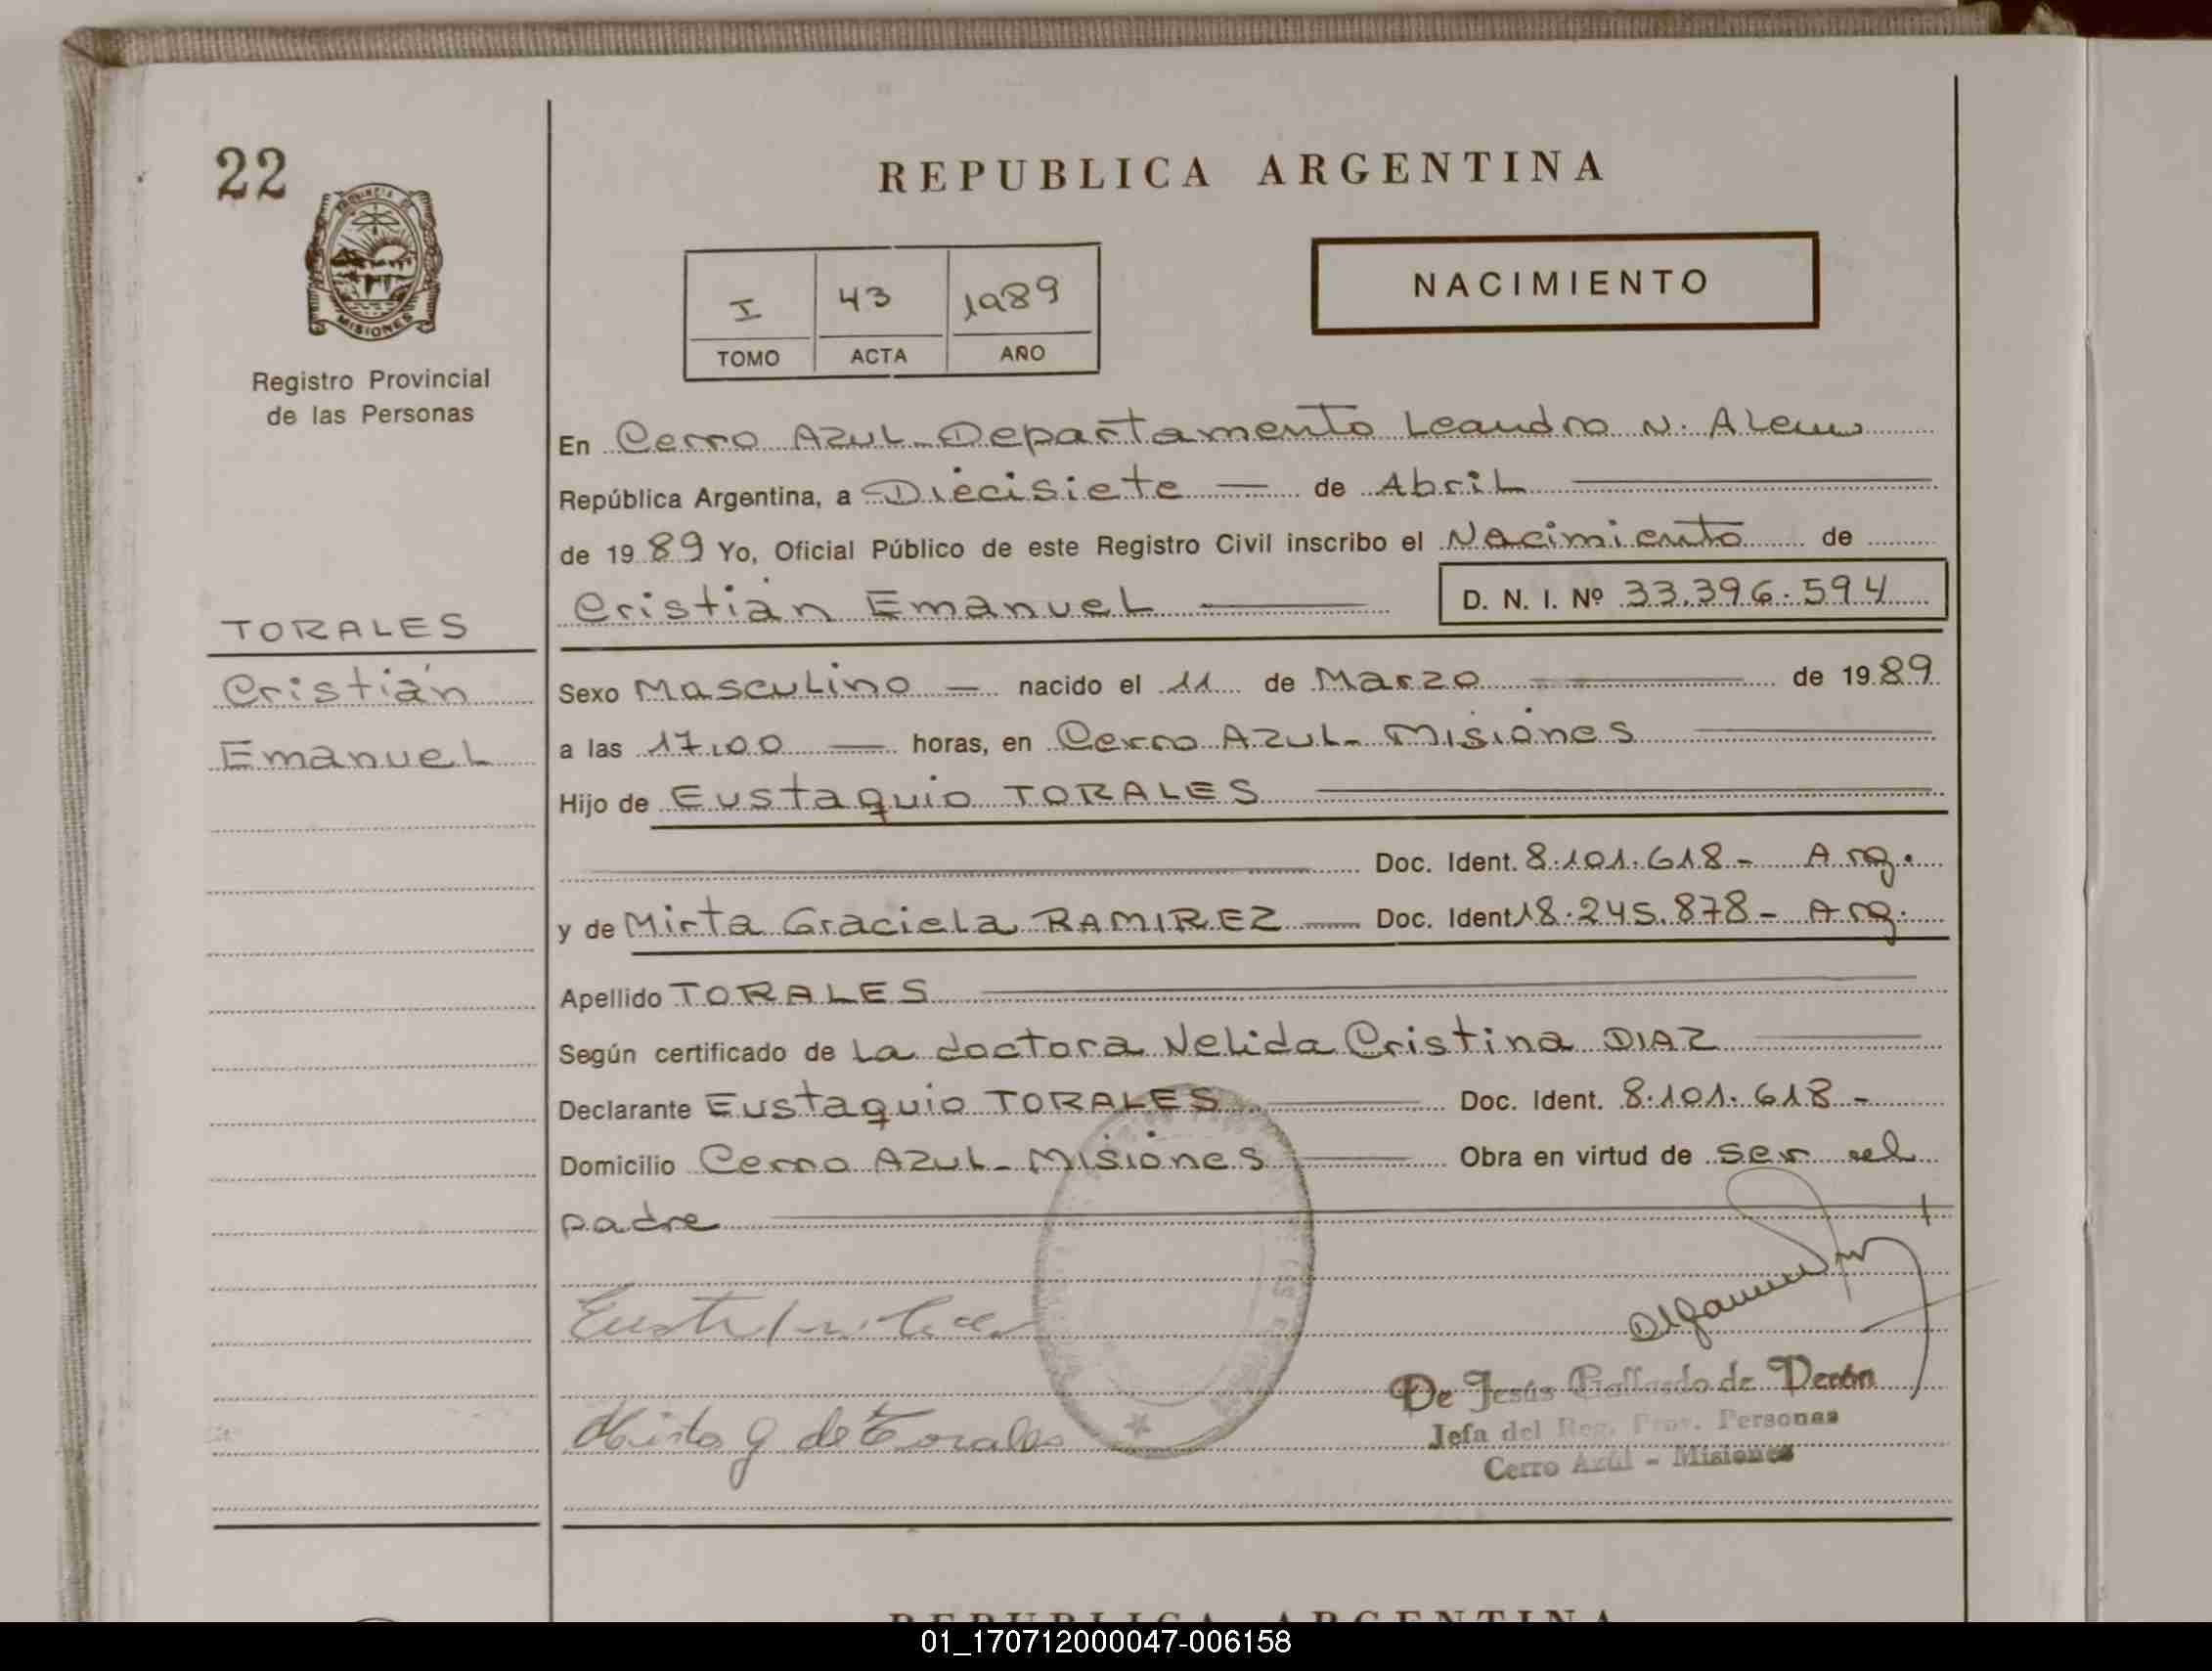 22
REPUBLICA ARGENTINA
PROVINCIA DE
MISIONES
Registro Provincial
de las Personas
I 43 1989
TOMO ACTA AÑO
NACIMIENTO
En Cerro Azul - Departamento Leandro N. Alem
República Argentina, a Diecisiete — de Abril
de 1989 Yo, Oficial Público de este Registro Civil inscribo el Nacimiento de
Cristian Emanuel D. N. I. Nº 33.396.594
TORALES
Cristian
Emanuel
Sexo Masculino — nacido el 11 de Marzo de 1989
a las 17,00 — horas, en Cerro Azul - Misiones
Hijo de Eustaquio TORALES
Doc. Ident. 8.101.618 - Arg.
y de Mirta Graciela RAMIREZ — Doc. Ident 18.245.878 - Arg.
Apellido TORALES
Según certificado de la doctora Nelida Cristina DIAZ
Declarante Eustaquio TORALES Doc. Ident. 8.101.618 -
Domicilio Cerro Azul - Misiones Obra en virtud de ser el
padre
Mirta g de Torales
De Jesús Gallardo de Perón
Jefa del Reg. Prov. Personas
Cerro Azúl - Misiones
REPUBLICA ARGENTINA
01_170712000047-006158